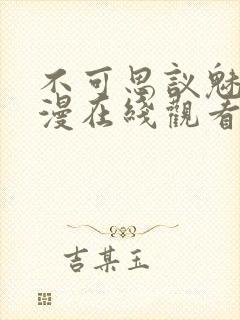 不可思议魅
漫在线觀看
吉某玉